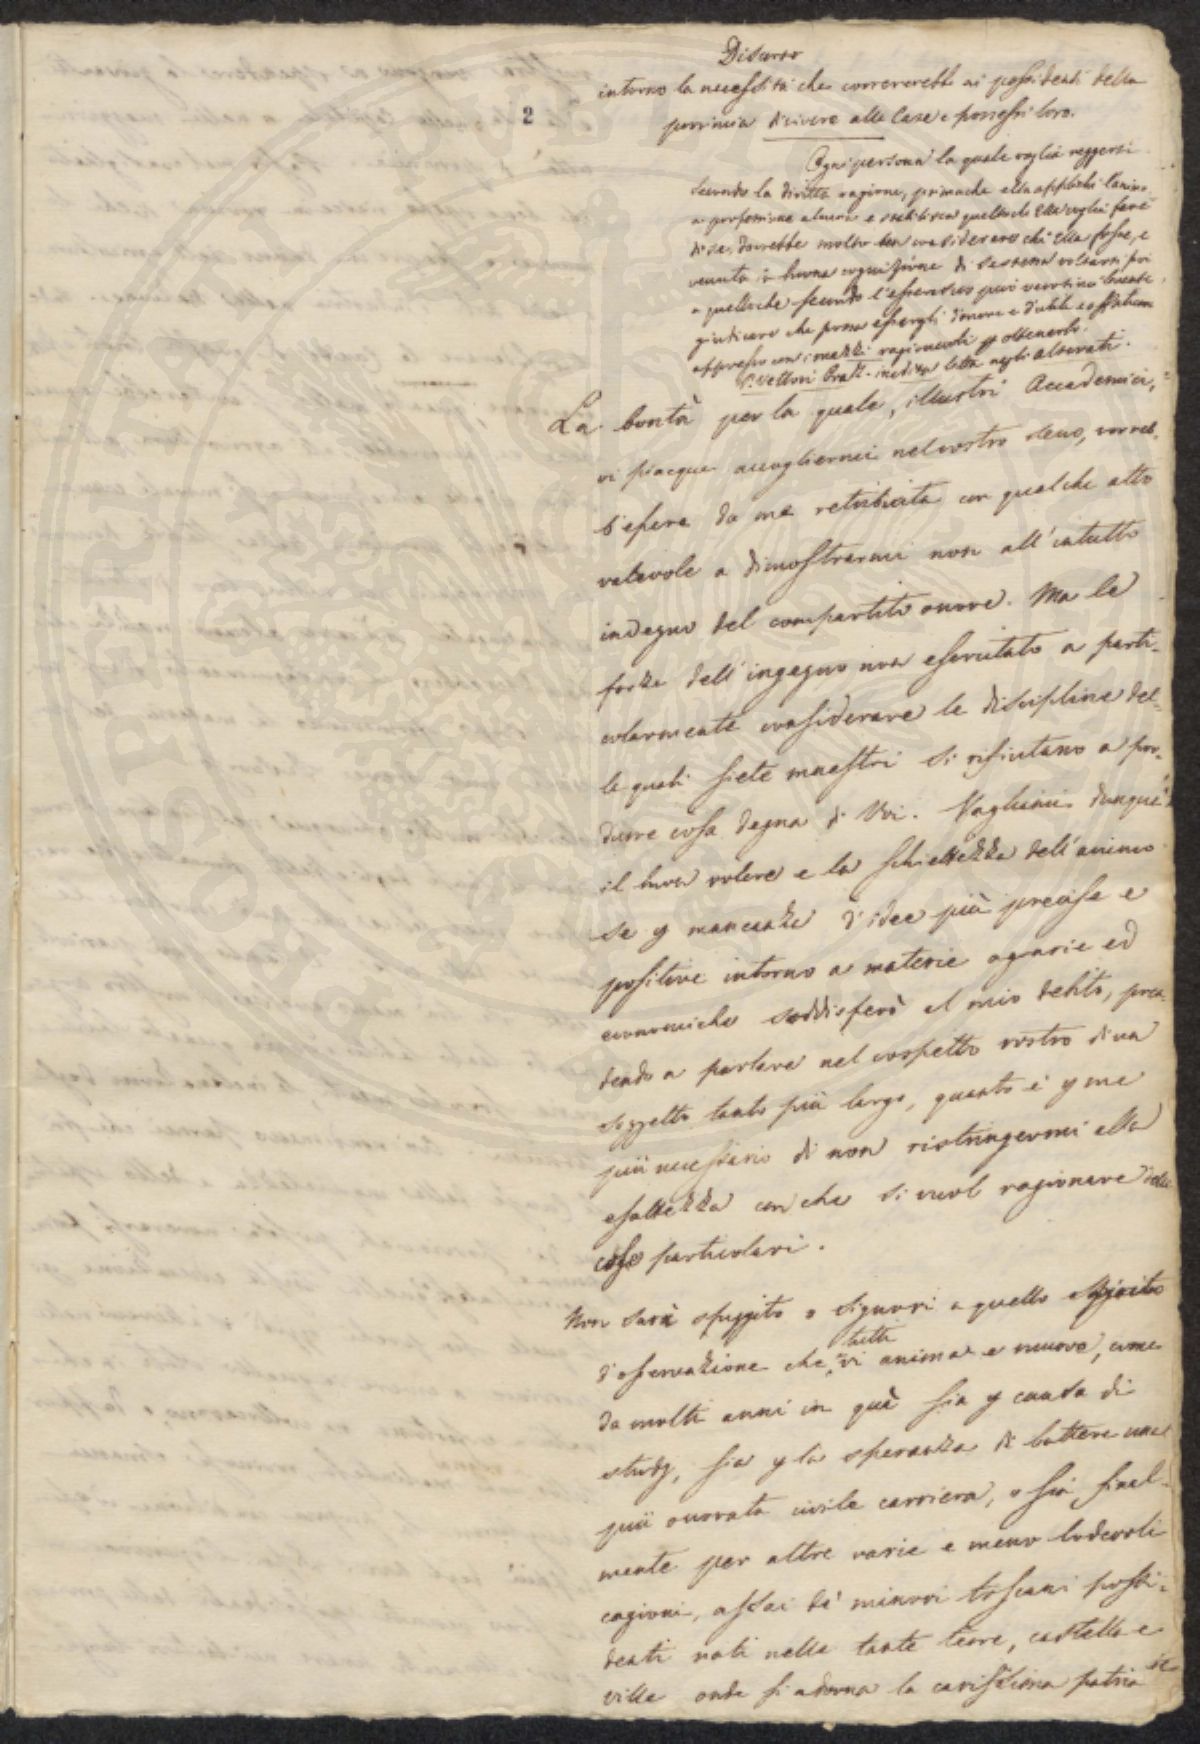 Discorso
intorno la necessità che correrebbe ai possidenti della
provincia di vivere alle Case e possessi loro.
2
Ogni persona la quale voglia reggersi
secondo la diritta ragione, primache ella applichi l'animo
a professione alcuna e stabilisca quello che Ella voglia fare
di se, dovrebbe molto ben considerare chi Ella fosse, e
venuta in buona cognizione di se stessa voltarsi poi
a quello che secondo l'esser suo può
giudicare che possa essergli d'onore e d'utile
appresso con i mezzi ragionevoli p ottenerlo.
P. Vettori Oraz. inedita letta negli Alterati.
La bontà per la quale, illustri Accademici,
vi piacque accogliermi nel vostro seno, vorreb-
b'essere da me retribuita con qualche atto
valevole a dimostrarmi non all'intutto
indegno del compartito onore. Ma le
forze dell'ingegno non esercitato a parti-
colarmente considerare le discipline del-
le quali siete maestri si rifiutano a pro-
durre cosa degna di Voi. Vagliami dunque
il buon volere e la schiettezza dell'animo
se p mancanza d'idee più precise e
positive intorno a materie agrarie ed
economiche soddisferò al mio debito, pren-
dendo a parlare nel cospetto vostro di un
soggetto tanto più largo, quanto è p me
più necessario di non ristringermi alla
esattezza con che si vuol ragionare delle
cose particolari.
Non sarà sfuggito o Signori a quello spirito
d'osservazione che tutti vi anima e muove, come
da molti anni in quà sia p causa di
studj, sia p la speranza di battere una
più onorata civile carriera, o sia final-
mente per altre varie e meno lodevoli
cagioni, assai de' minori toscani possi-
denti nati nelle tante terre, castella e
ville onde si adorna la carissima patria